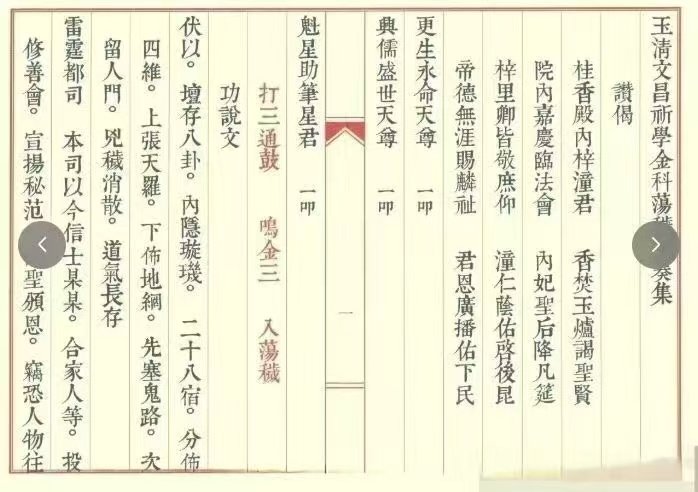 玉清文昌祈學金科蕩穢奏集
讚偈
桂香殿內梓潼君 香焚玉爐謁聖賢
院內嘉慶臨法會 內妃聖后降凡筵
梓里卿皆敬庶仰 潼仁蔭佑啓後昆
帝德無涯賜麟祉 君恩廣播佑下民
更生永命天尊 一叩
興儒盛世天尊 一叩
一
魁星助筆星君 一叩
打三通鼓 鳴金三 入蕩穢
功說文
伏以。壇存八卦。內隱璇璣。二十八宿。分佈
四維。上張天羅。下佈地網。先塞鬼路。次
留人門。兇穢消散。道氣長存
雷霆都司 本司以今信士某某。合家人等。投
修善會。宣揚秘范 聖頒恩。竊恐人物往